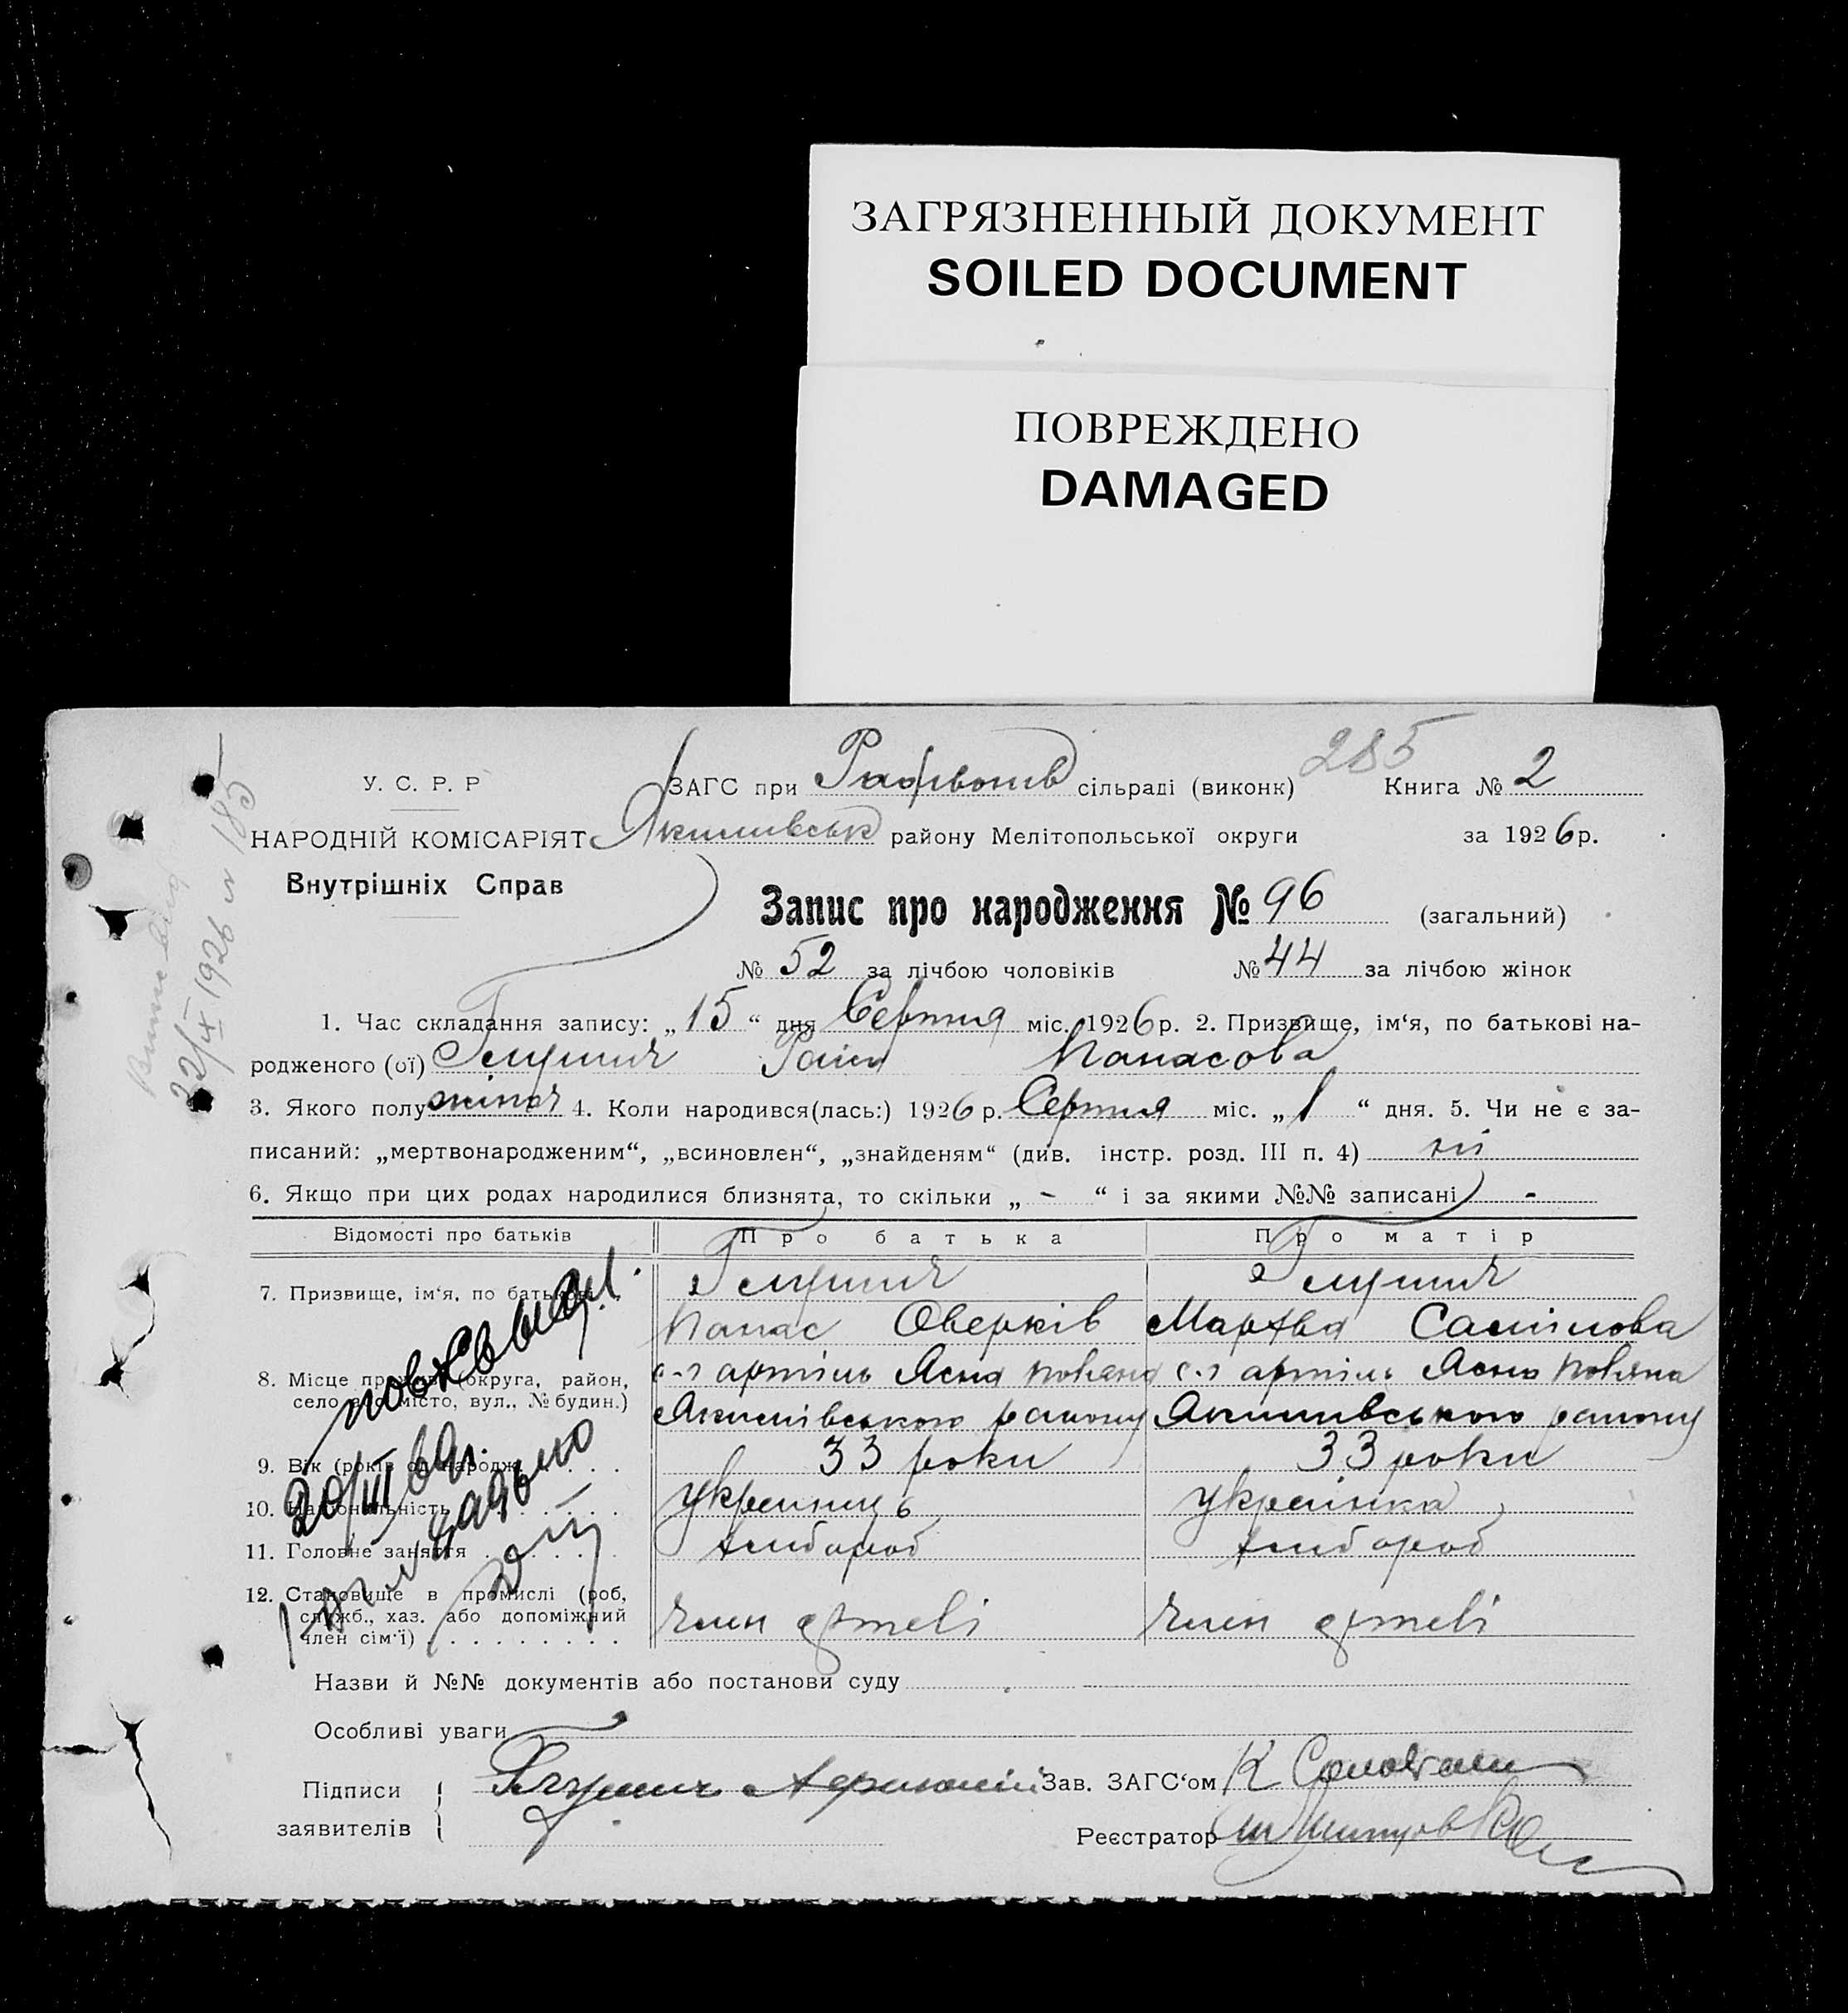 ЗАГРЯЗНЕННЫЙ ДОКУМЕНТ
SOILED DOCUMENT
ПОВРЕЖДЕНО
DAMAGED
285
У. С. Р. Р
ЗАГС при сільраді (виконк) Книга № 2
НАРОДНІЙ КОМІСАРІЯТ Якимівськ району Мелітопольської округи за 1926 р.
Внутрішніх Справ
Запис про народження № 96 (загальний)
№ 52 за лічбою чоловіків № 44 за лічбою жінок
22/IX 1926 № 185
1. Час складання запису: „ 15 “ дня Серпня міс. 1926 р. 2. Призвище, ім‘я, по батькові на-
родженого (ої) Глушич Раїса Панасова
3. Якого полу жіноч 4. Коли народився(лась:) 1926 р. Серпня міс. „ 1 “ дня. 5. Чи не є за-
писаний: „мертвонародженим“, „всиновлен“, „знайденям“ (див. інстр. розд. III п. 4) ні
6. Якщо при цих родах народилися близнята, то скільки „ - “ і за якими №№ записані -
Відомості про батьків Про батька Про матір
7. Призвище, ім‘я, по батькові Глушич Глушич
Панас Оверків Марфва Самійлова
8. Місце (округа, район, с-г артіль Ясна поляна с-г артіль Ясна поляна
село або місто, вул., № будин.) Якимівського району Якимівського району
9. Вік (років од народж. 33 роки 33 роки
10. Національність Українець Українка
11. Головне заняття хлібороб хлібороб
12. Становище в промислі (роб, член артелі член артелі
служб., хаз. або допоміжний
член сім‘ї)
Назви й №№ документів або постанови суду
Особливі уваги
Підписи Глушич Зав. ЗАГС‘ом К
заявителів
Реєстратор